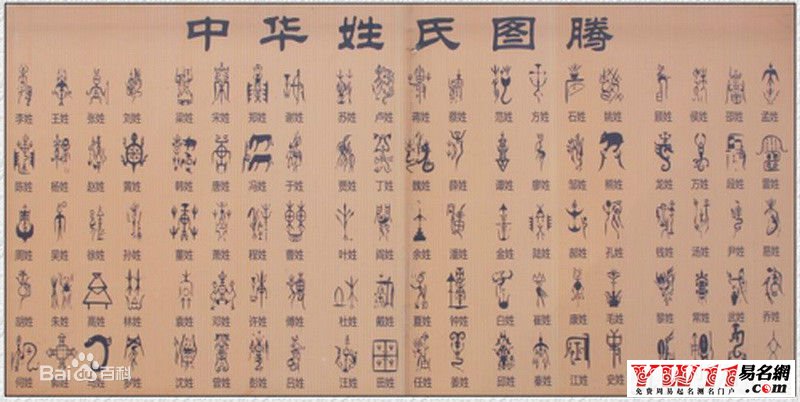 中华姓氏图腾
李姓 王姓 张姓 刘姓 梁姓 宋姓 郑姓 谢姓 苏姓 卢姓 蒋姓 蔡姓 范姓 方姓 石姓 姚姓 顾姓 侯姓 邵姓 孟姓
陈姓 杨姓 赵姓 黄姓 韩姓 唐姓 冯姓 于姓 贾姓 丁姓 魏姓 薛姓 谭姓 廖姓 邹姓 熊姓 龙姓 万姓 段姓 雷姓
周姓 吴姓 徐姓 孙姓 董姓 萧姓 程姓 曹姓 叶姓 阎姓 余姓 潘姓 金姓 陆姓 郝姓 孔姓 钱姓 汤姓 尹姓 易姓
胡姓 朱姓 高姓 林姓 袁姓 邓姓 许姓 傅姓 杜姓 戴姓 夏姓 钟姓 白姓 崔姓 康姓 毛姓 黎姓 常姓 武姓 乔姓
何姓 马姓 罗姓 沈姓 曾姓 彭姓 吕姓 汪姓 田姓 任姓 姜姓 邱姓 秦姓 江姓 史姓
Bai 百科
易名網
免费周易起名测名门户